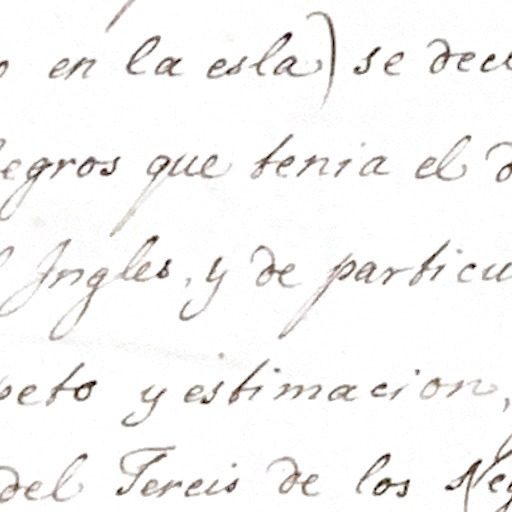 o en la esla) se decl
legros que tenia el d
l Ingles, y de particu
peto y estimacion,
del Tercis de los Neg